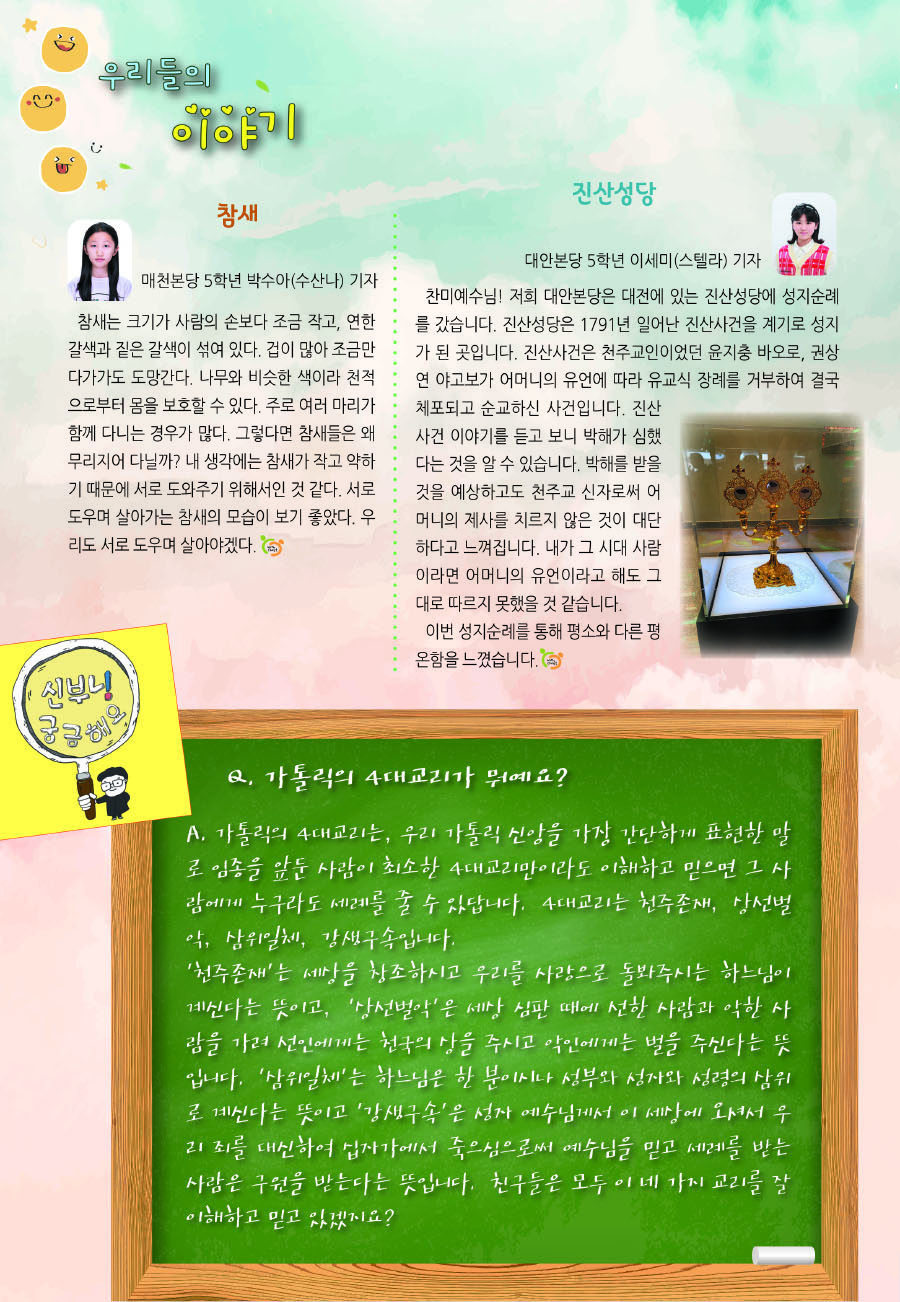 우리들의
이야기
참새
매천본당 5학년 박수아(수산나) 기자
참새는 크기가 사람의 손보다 조금 작고, 연한
갈색과 짙은 갈색이 섞여 있다. 겁이 많아 조금만
다가가도 도망간다. 나무와 비슷한 색이라 천적
으로부터 몸을 보호할 수 있다. 주로 여러 마리가
함께 다니는 경우가 많다. 그렇다면 참새들은 왜
무리지어 다닐까? 내 생각에는 참새가 작고 약하
기 때문에 서로 도와주기 위해서인 것 같다. 서로
도우며 살아가는 참새의 모습이 보기 좋았다. 우
리도 서로 도우며 살아야겠다.
진산성당
대안본당 5학년 이세미(스텔라) 기자
찬미예수님! 저희 대안본당은 대전에 있는 진산성당에 성지순례
를 갔습니다. 진산성당은 1791년 일어난 진산사건을 계기로 성지
가 된 곳입니다. 진산사건은 천주교인이었던 윤지충 바오로, 권상
연 야고보가 어머니의 유언에 따라 유교식 장례를 거부하여 결국
체포되고 순교하신 사건입니다. 진산
사건 이야기를 듣고 보니 박해가 심했
다는 것을 알 수 있습니다. 박해를 받을
것을 예상하고도 천주교 신자로써 어
머니의 제사를 치르지 않은 것이 대단
하다고 느껴집니다. 내가 그 시대 사람
이라면 어머니의 유언이라고 해도 그
대로 따르지 못했을 것 같습니다.
이번 성지순례를 통해 평소와 다른 평
온함을 느꼈습니다.
신부님!
궁금해요
Q. 가톨릭의 4대교리가 뭐예요?
A. 가톨릭의 4대교리는, 우리 가톨릭 신앙을 가장 간단하게 표현한 말
로 임종을 앞둔 사람이 최소한 4대교리만이라도 이해하고 믿으면 그 사
람에게 누구라도 세례를 줄 수 있답니다. 4대교리는 천주존재, 상선벌
악, 삼위일체, 강생구속입니다.
'천주존재'는 세상을 창조하시고 우리를 사랑으로 돌봐주시는 하느님이
계신다는 뜻이고, '상선벌악'은 세상 심판 때에 선한 사람과 악한 사
람을 가려 선인에게는 천국의 상을 주시고 악인에게는 벌을 주신다는 뜻
입니다. '삼위일체'는 하느님은 한 분이시나 성부와 성자와 성령의 삼위
로 계신다는 뜻이고 '강생구속'은 성자 예수님께서 이 세상에 오셔서 우
리 죄를 대신하여 십자가에서 죽으심으로써 예수님을 믿고 세례를 받는
사람은 구원을 받는다는 뜻입니다. 친구들은 모두 이 네 가지 교리를 잘
이해하고 믿고 있겠지요?